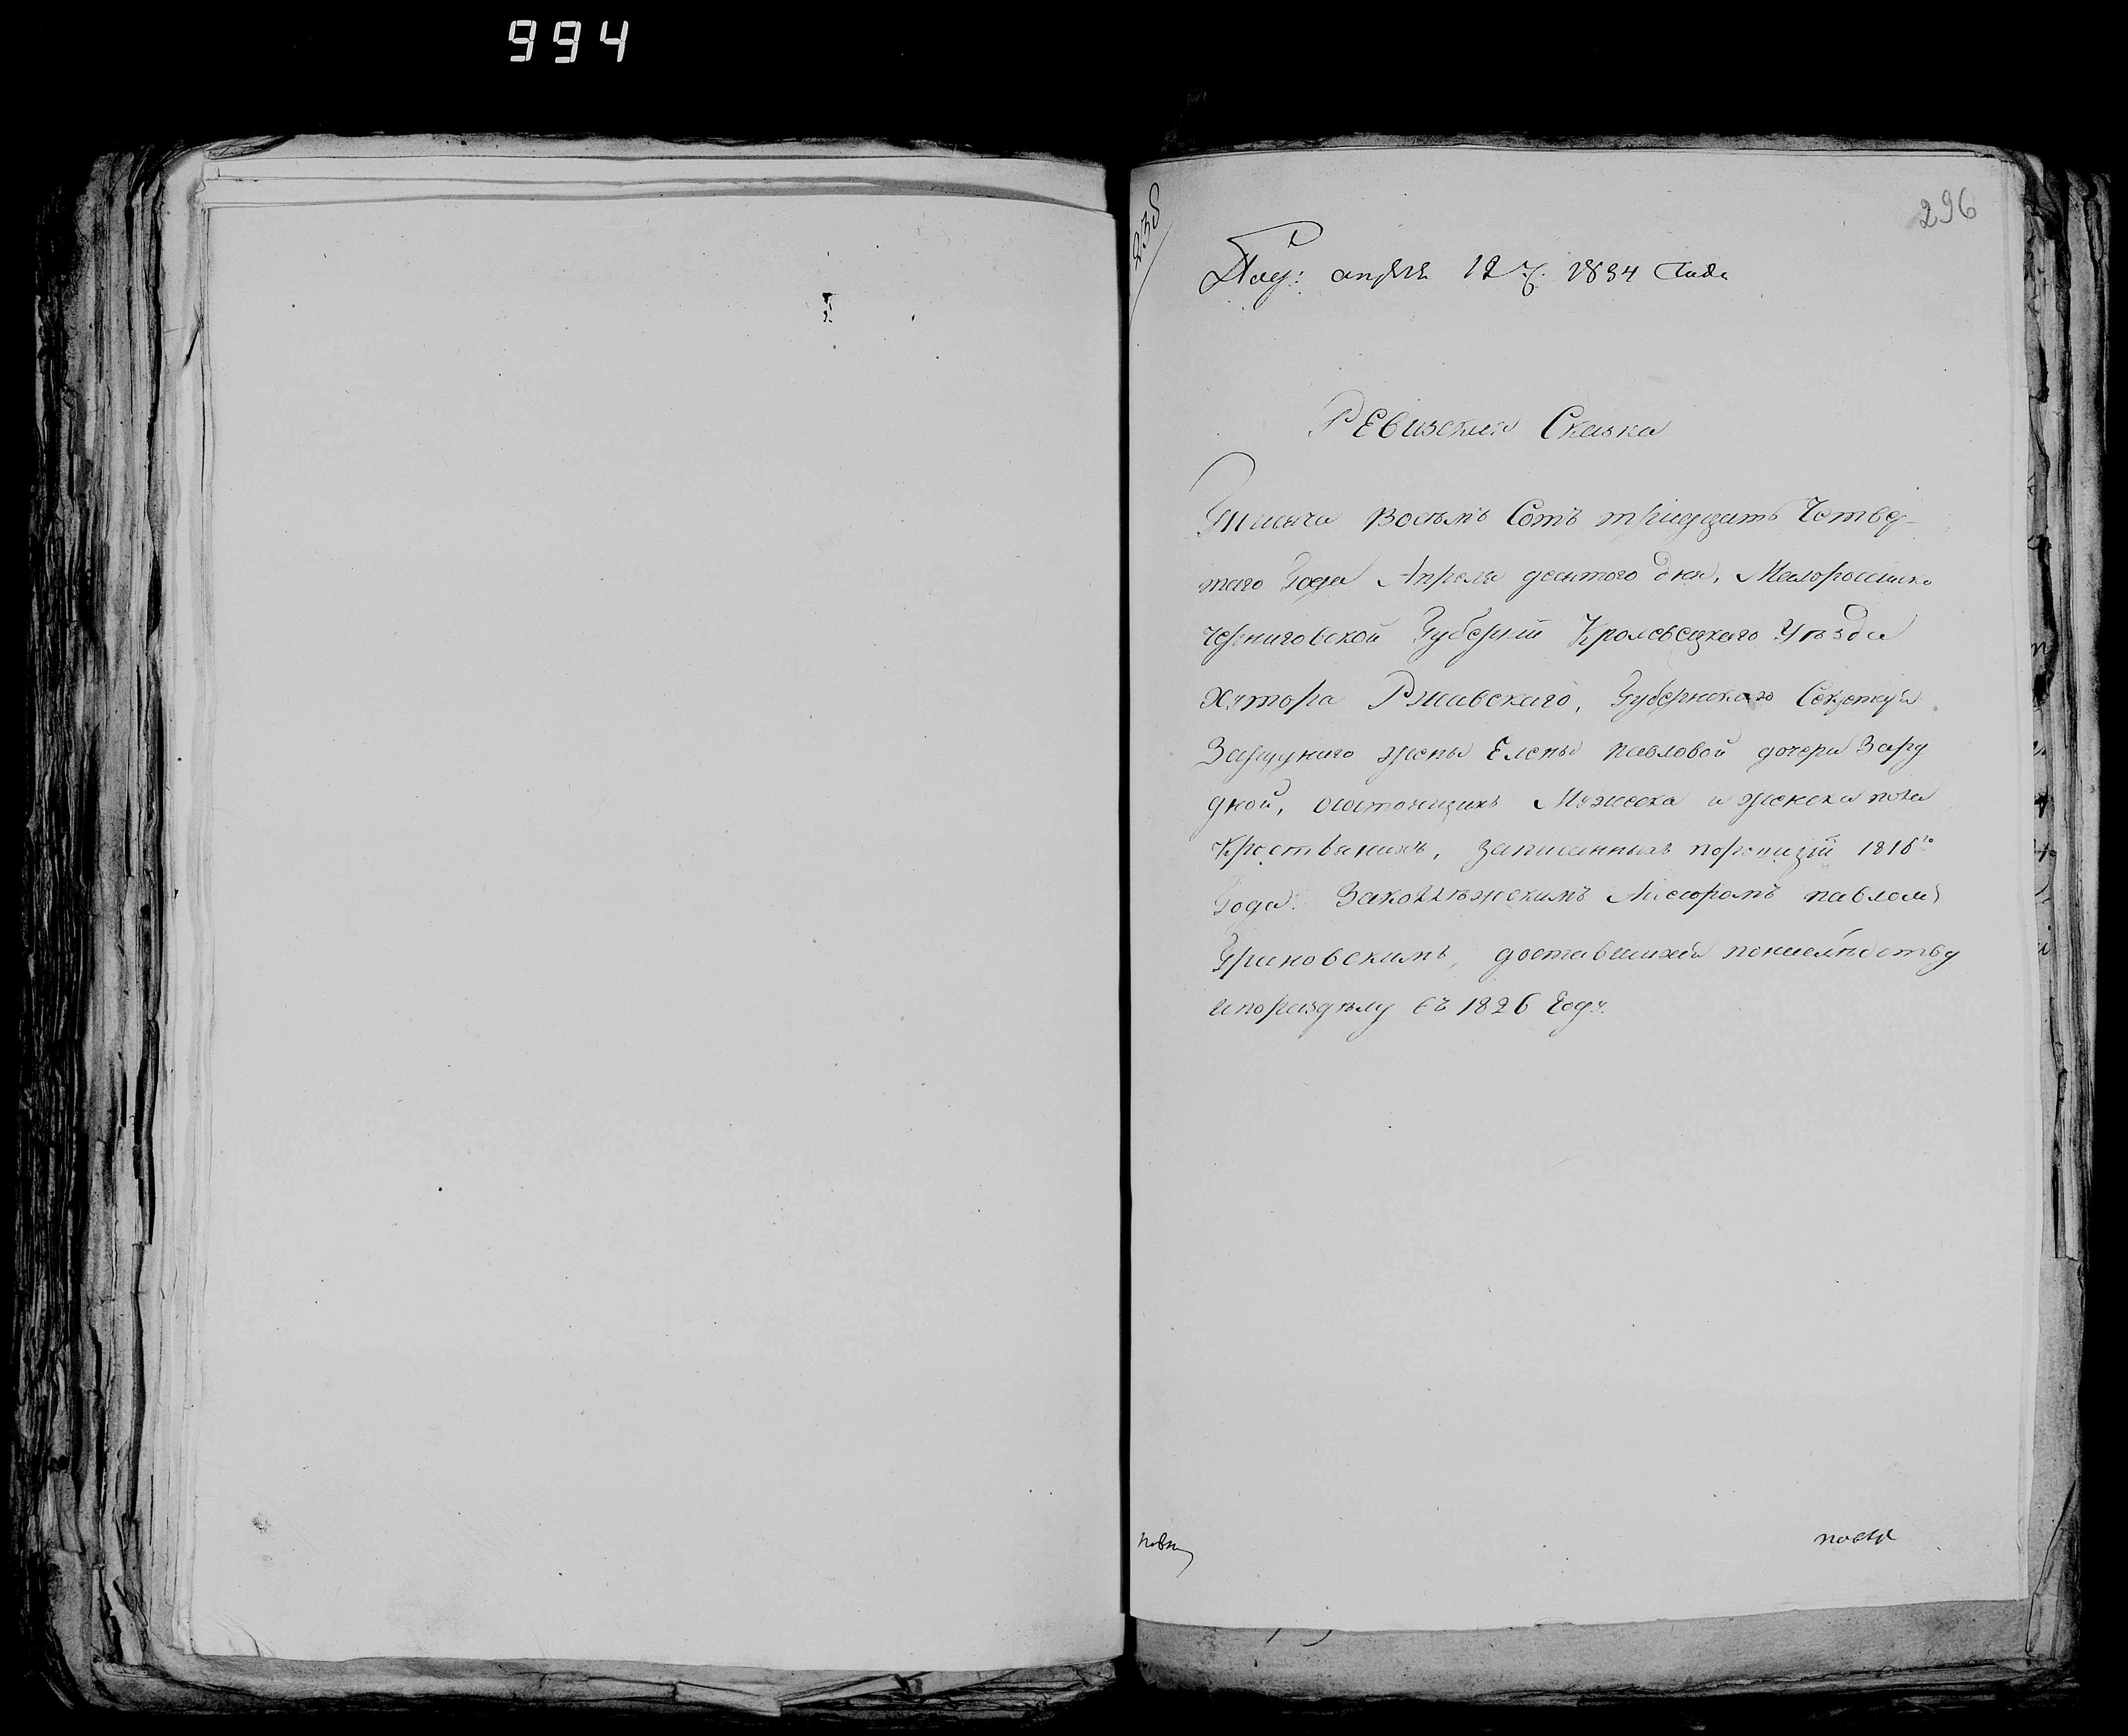 994
296
238
Под: апреля 12 ч. 1834 Года
РЕвизская Сказка
Тысяча Восемь Сотъ тридцать Четвер-
таго Года Апреля десятого дня, Малоросийско
Черниговской Губернии Кролевецкаго Уѣзда
Хутора Ржавскаго, Губернского Секретаря
Заруднаго жены Елены павловой дочери Зару
дной, состоящихъ Мужеска и женска пола
Крестьянахъ, записанныхъ поревизіи 1816го
Года. Заколлѣжскимъ Асесоромъ павломъ
Гриновскимъ, доставшихся понаслѣдству
ипораздѣлу въ 1826 Году.